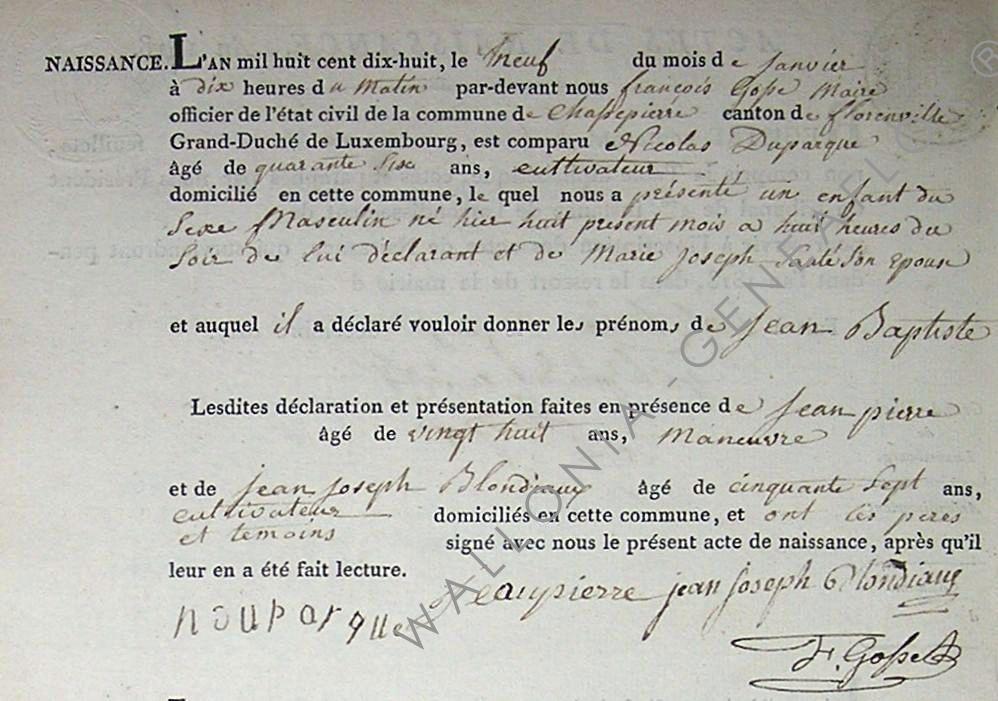 NAISSANCE. L'AN mil huit cent dix-huit, le neuf du mois de Janvier
à dix heures du Matin par-devant nous françois Gosse Maire
officier de l'état civil de la commune de Chassepierre canton de florenville
Grand-Duché de Luxembourg, est comparu Nicolas Duparque
âgé de quarante Six ans, cultivateur
domicilié en cette commune, le quel nous a présenté un enfant du
Sexe Masculin né hier huit présent mois a huit heures du
Soir de lui déclarant et de Marie Joseph Son epouse
et auquel il a déclaré vouloir donner les prénoms de Jean Baptiste
Lesdites déclaration et présentation faites en présence de Jean pierre
âgé de vingt huit ans, Maneuvre
et de Jean Joseph Blondiaux âgé de cinquante Sept ans,
cultivateur domiciliés en cette commune, et ont les peres
et temoins signé avec nous le présent acte de naissance, après qu'il
leur en a été fait lecture.
nDuparque Jeanpierre jean joseph Blondiaux
F. Gosse
WALLONIA-GENEALO